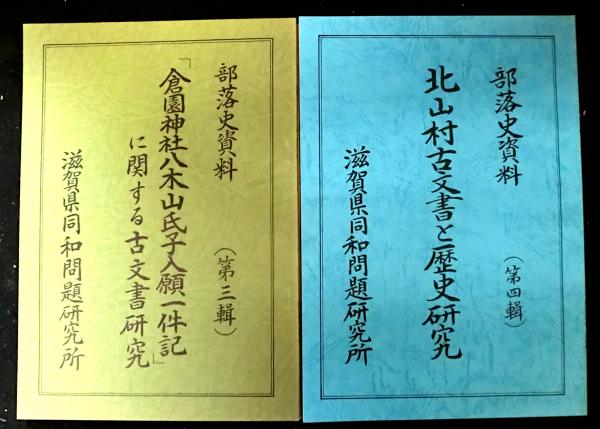 部落史資料
(第三輯)
「倉園神社八木山氏子入願一件記」
に関する古文書研究
滋賀県同和問題研究所
部落史資料
(第四輯)
北山村古文書と歴史研究
滋賀県同和問題研究所